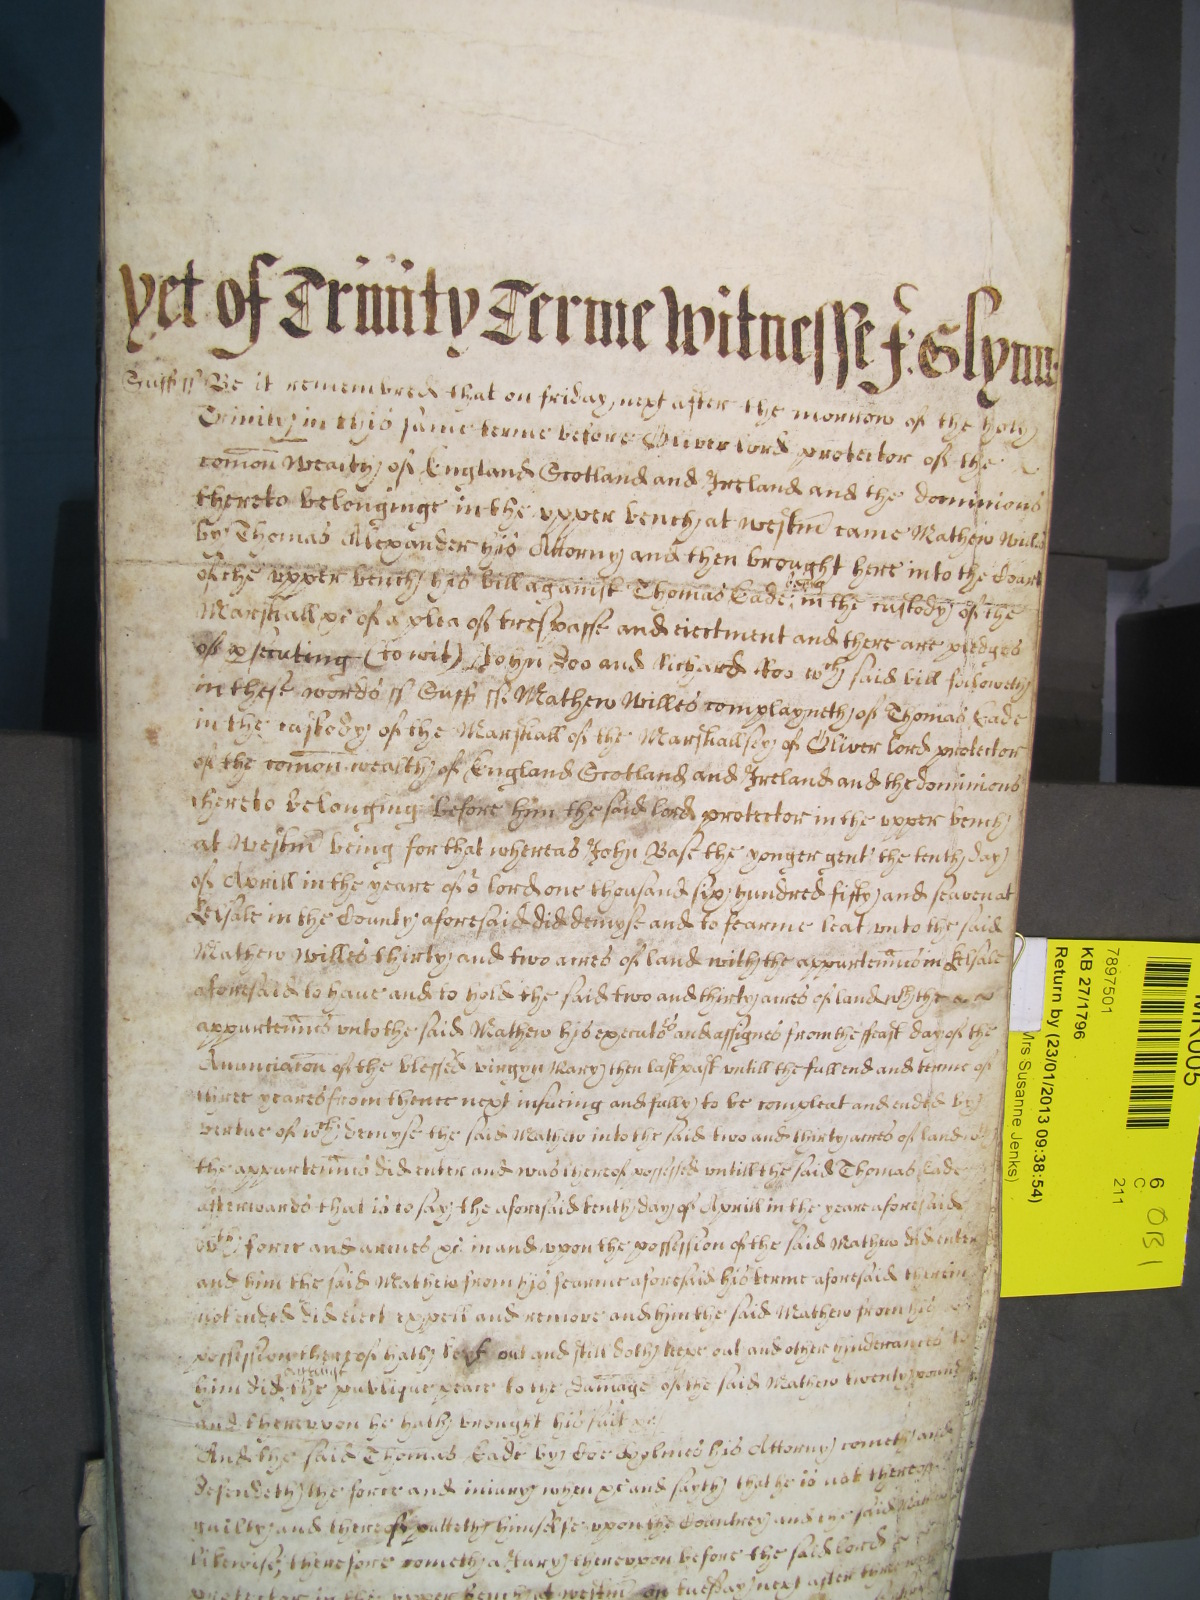 yet of Trinity Terme Witnesse J: Glynn
Suff ss Be it remembred that on friday next after the morrow of the holy
Trinity in this same terme before Oliver lord protector of the
comon Wealth of England Scotland and Ireland and the dominions
thereto belonginge in the upper bench at Westm came Mathew Willes
by Thomas Alexander his Attorny and then brought here into the Court
of the upper bench his bill against Thomas Cade being in the custody of the
Marshall &c of a plea of trespasse and eiectment and there are pledges
of psecuting (to wit) John Doo and Richard Roo wch said bill followeth
in these words ss Suff ss Mathew Willes complayneth of Thomas Cade
in the custody of the Marshall of the Marshallsey of Oliver lord protector
of the comon wealth of England Scotland and Ireland and the dominions
thereto belonging before him the said lord protector in the upper bench
at Westm being for that whereas John Base the yonger gent the tenth day
of Aprill in the yeare of or lord one thousand six hundred fifty and seaven at
Kelsale in the County aforesaid did demyse and to fearme leat unto the said
Mathew Willes thirty and two acres of land with the appurtennces in Kelsale
aforesaid to have and to hold the said two and thirty acres of land wth the
appurtennces unto the said Mathew his executors and assignes from the feast day of the
Anunciacon of the blessed virgyn Mary then last past untill the full end and terme of
three yeares from thence next insuing and fully to be compleat and ended by
vertue of wch demyse the said Mathew into the said two and thirty acres of land wth
the appurtennces did enter and was thereof possessed untill the said Thomas Cade
afterwards that is to say the aforesaid tenth day of Aprill in the yeare aforesaid
wth force and armes &c in and upon the possession of the said Mathew did enter
and him the said Mathew from his fearme aforesaid his terme aforesaid therein
not ended did eiect expell and remove and him the said Mathew from his
possession thereof hath kept out and still doth keepe out and other hinderances to
him did against the publique peace to the damage of the said Mathew twenty pounds
and thereupon he hath brought his suit &c
And the said Thomas Cade by Holmes his Attorny cometh and
defendeth the force and iniury when &c and sayth that he is not thereof
guilty and thereof putteth himselfe upon the Countrey and the said Mathew
likewise therefore cometh a Jury thereupon before the said lord
protector in the upper bench at westm on tuesday next after three
MR005
7897501
KB 27/1796
Return by (23/01/2013 09:38:54)
Mrs Susanne Jenks)
6
C
211
OB1